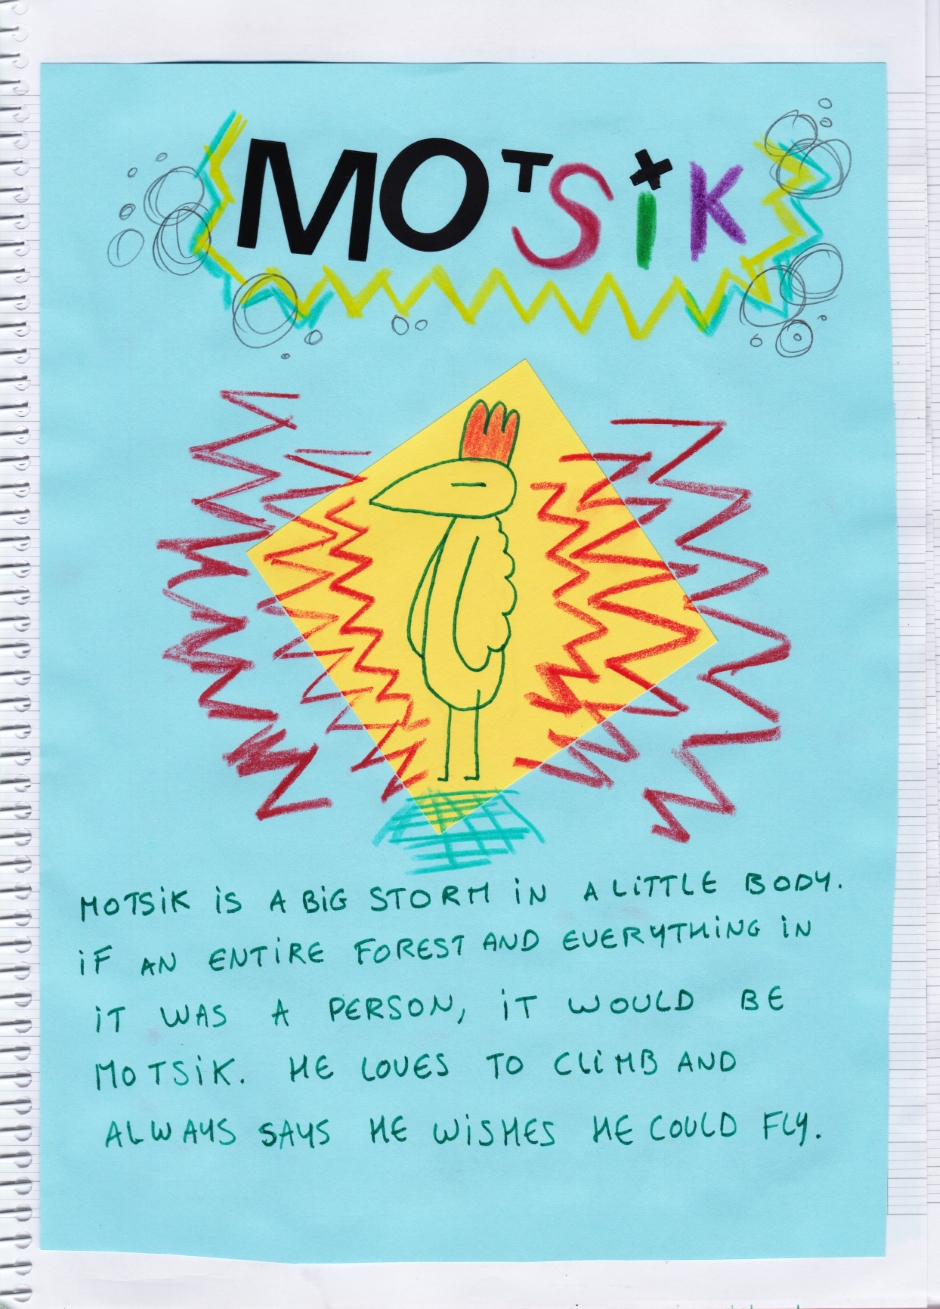 MOTSiK
MOTSiK iS A BiG STORM iN A LiTTLE BODY.
iF AN ENTiRE FOREST AND EVERYTHiNG iN
iT WAS A PERSON, iT WOULD BE
MOTSiK. HE LOVES TO CLiMB AND
ALWAYS SAYS HE WiSHES HE COULD FLY.